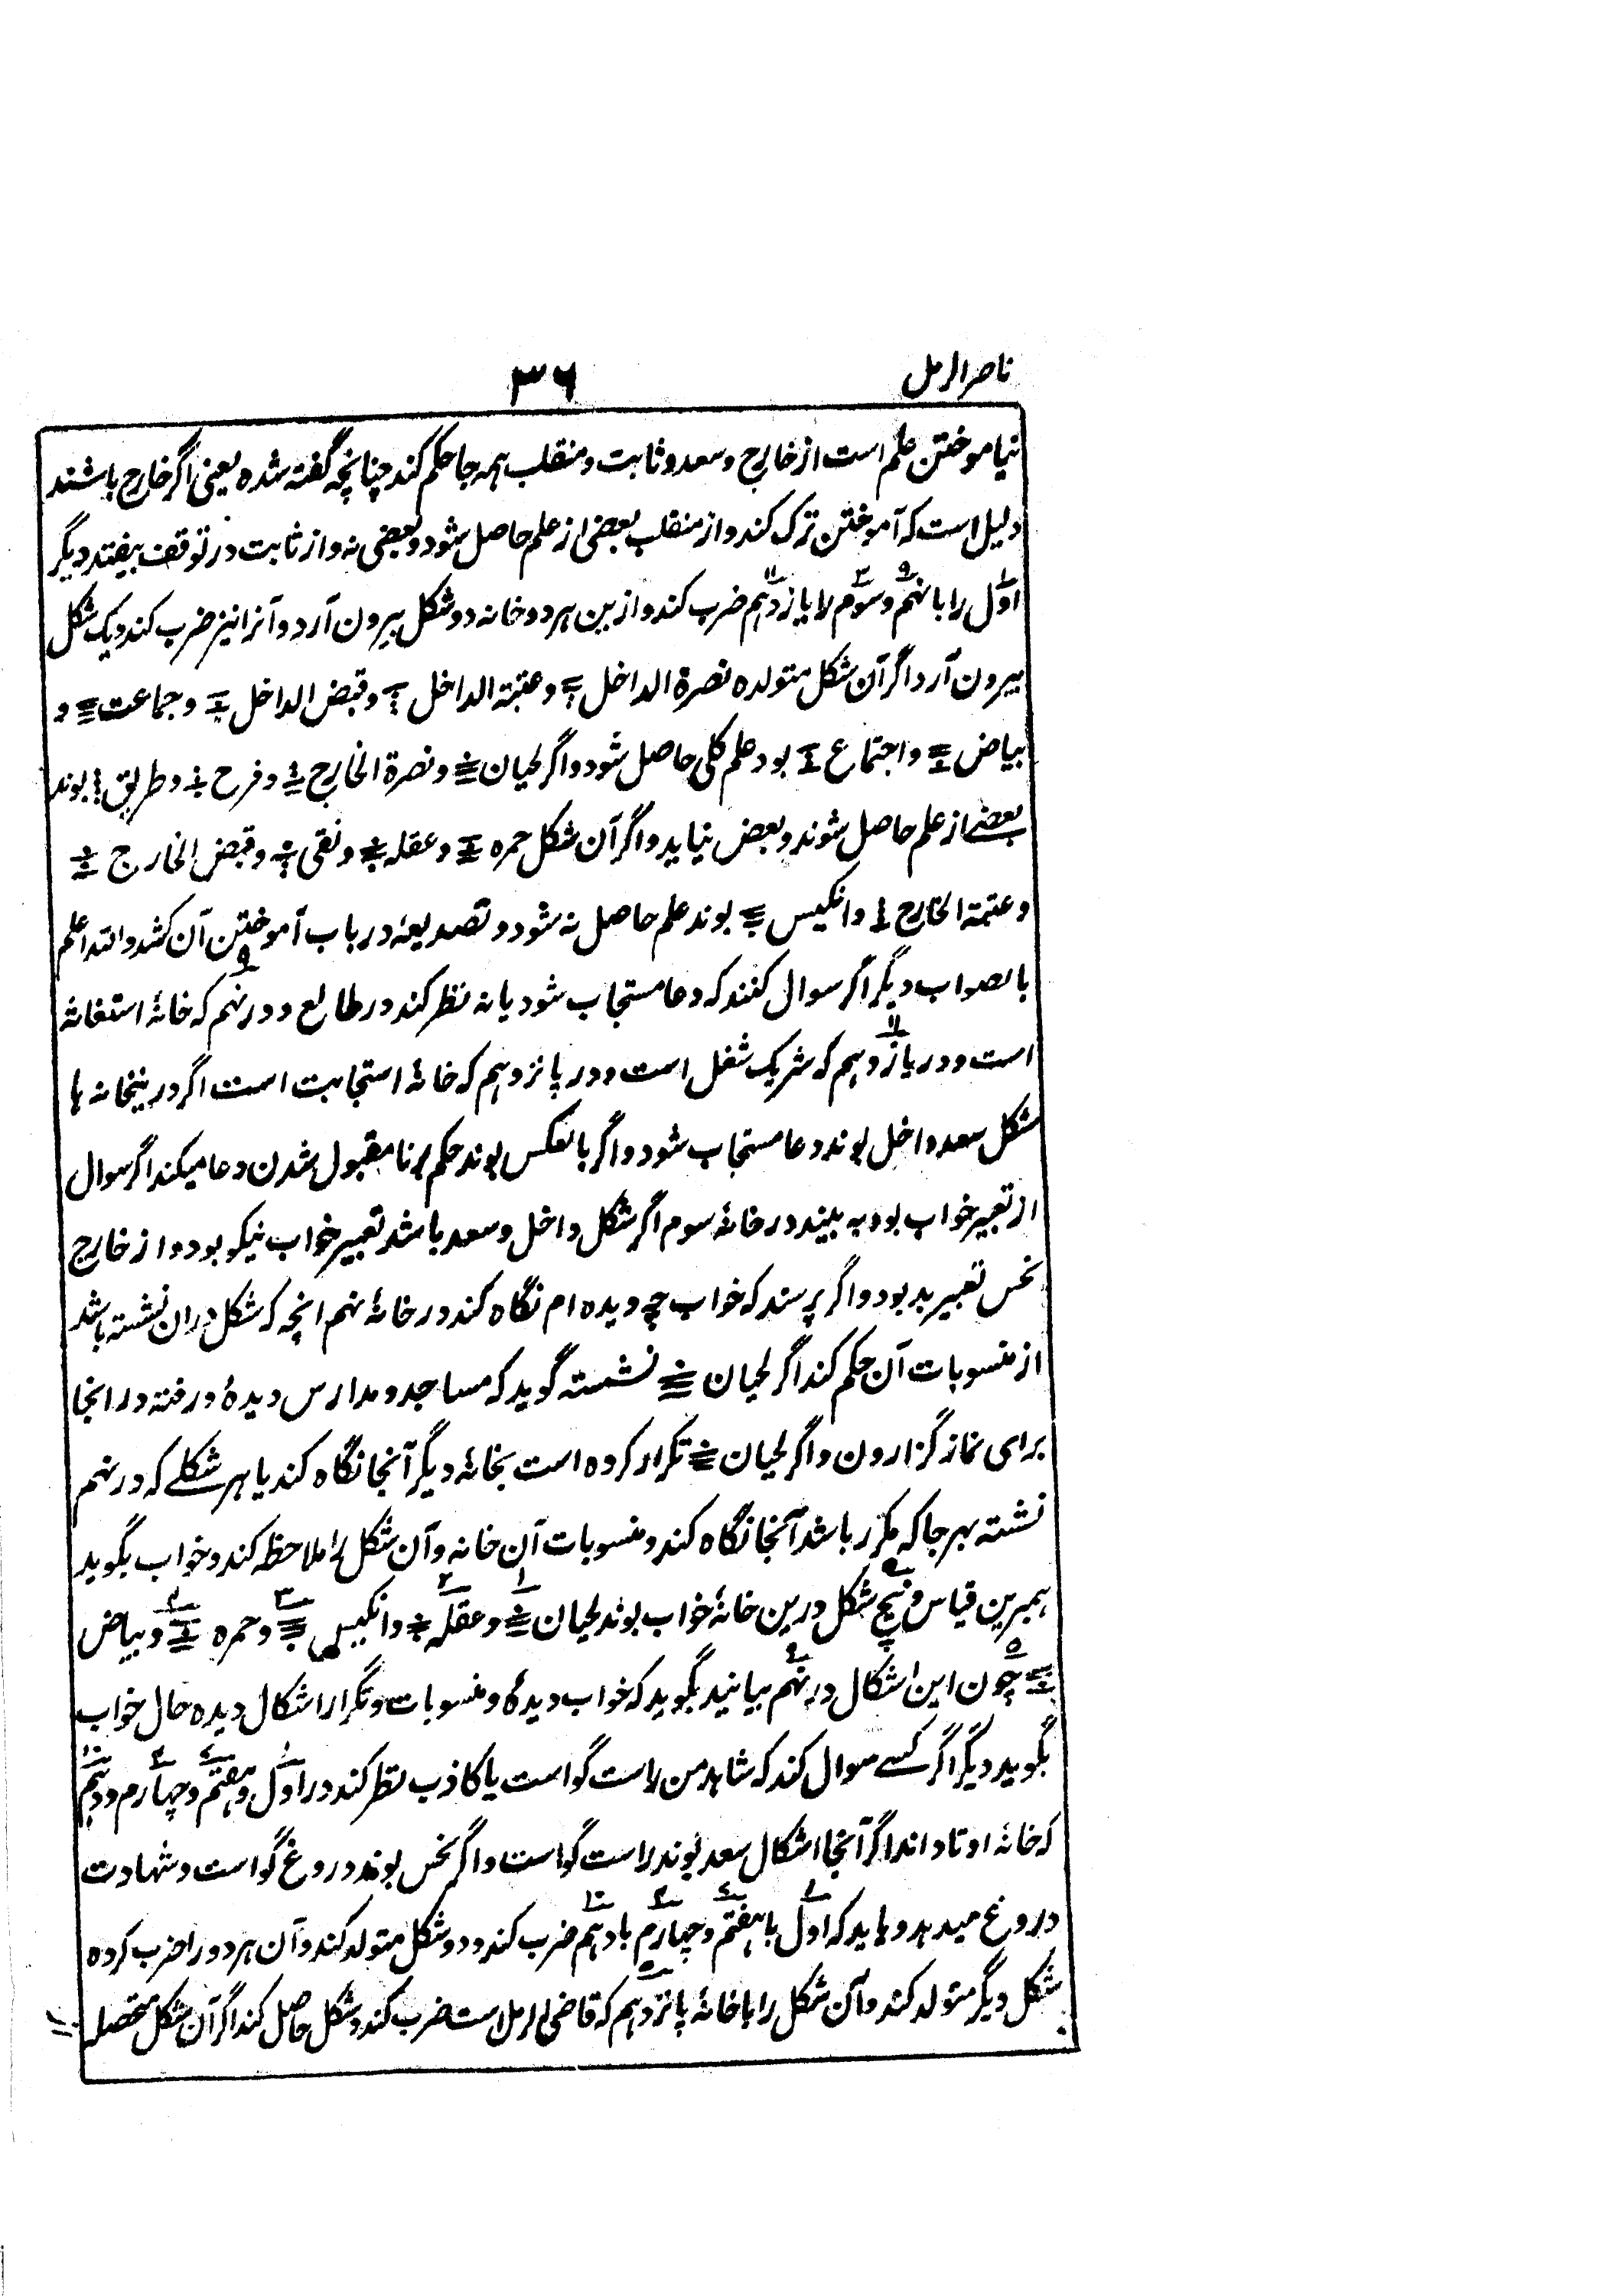 ناصر الرمل
۳۶
نیاموختن علم است از خارج و سعد و ثابت و منقلب همه جا حکم کند چنانچه گفته شده یعنی اگر خارج باشند
دلیل است که آموختن ترک کند و از منقلب بعضی از علم حاصل شود و بعضی نه و از ثابت در توقف بیفتد دیگر
اول را با نهم و سوم را با یازدهم ضرب کند و از بین هر دو خانه دو شکل بیرون آرد و آنرا نیز ضرب کند و یک شکل
بیرون آرد اگر آن شکل متولده نصرة الداخل و عتبة الداخل و قبض الداخل و جماعت و
بیاض و اجتماع بود علم کلی حاصل شود و اگر لحیان و نصرة الخارج و فرح و طریق بوند
بعضے از علم حاصل شوند و بعض نیاید و اگر آن شکل حمره و عقله و نقی و قبض الخارج
و عتبة الخارج و انکیس بوند علم حاصل نه شود و تصدیعه در باب آموختن آن کشد والله اعلم
بالصواب دیگر اگر سوال کنند که دعا مستجاب شود یا نه نظر کند در طالع و در نهم که خانهٔ استغاثه
است و در یازدهم که شریک شغل است و در پانزدهم که خانهٔ استجابت است اگر درینخانه ها
شکل سعد داخل بوند دعا مستجاب شود و اگر بالعکس بوند حکم بر نا مقبول شدن دعا میکند اگر سوال
از تعبیر خواب بود به بیند در خانهٔ سوم اگر شکل داخل و سعد باشد تعبیر خواب نیکو بود و از خارج
نحس تعبیر بد بود و اگر پرسند که خواب چه دیده ام نگاه کند در خانهٔ نهم انچه که شکل دران نشسته باشد
از منسوبات آن حکم کند اگر لحیان نشسته گوید که مساجد و مدارس دیدهٔ و رفته در انجا
برای نماز گزاردن و اگر لحیان تکرار کرده است بخانهٔ دیگر آنجا نگاه کند یا هر شکلے که در نهم
نشسته بهر جا که مکرر باشد آنجا نگاه کند و منسوبات آن خانه و آن شکل را ملاحظه کند و خواب بگوید
همبرین قیاس و پنج شکل درین خانهٔ خواب بوند لحیان و عقله و انکیس و حمره و بیاض
چون این اشکال در نهم بیایند بگوید که خواب دیدهٔ و منسوبات و تکرار اشکال دیده حال خواب
بگوید دیگر اگر کسے سوال کند که شاهد من راست گو است یا کاذب نظر کند در اول و هفتم و چهارم و دهم
که خانهٔ اوتاد اند اگر آنجا اشکال سعد بوند راست گو است و اگر نحس بوند دروغ گو است و شهادت
دروغ میدهد و باید که اول با هفتم و چهارم با دهم ضرب کند و دو شکل متولد کند و آن هر دو را ضرب کرده
شکل دیگر متولد کند و آن شکل را با خانهٔ پانزدهم که قاضی الرمل است ضرب کند و شکل حاصل کند اگر آن شکل متحصله